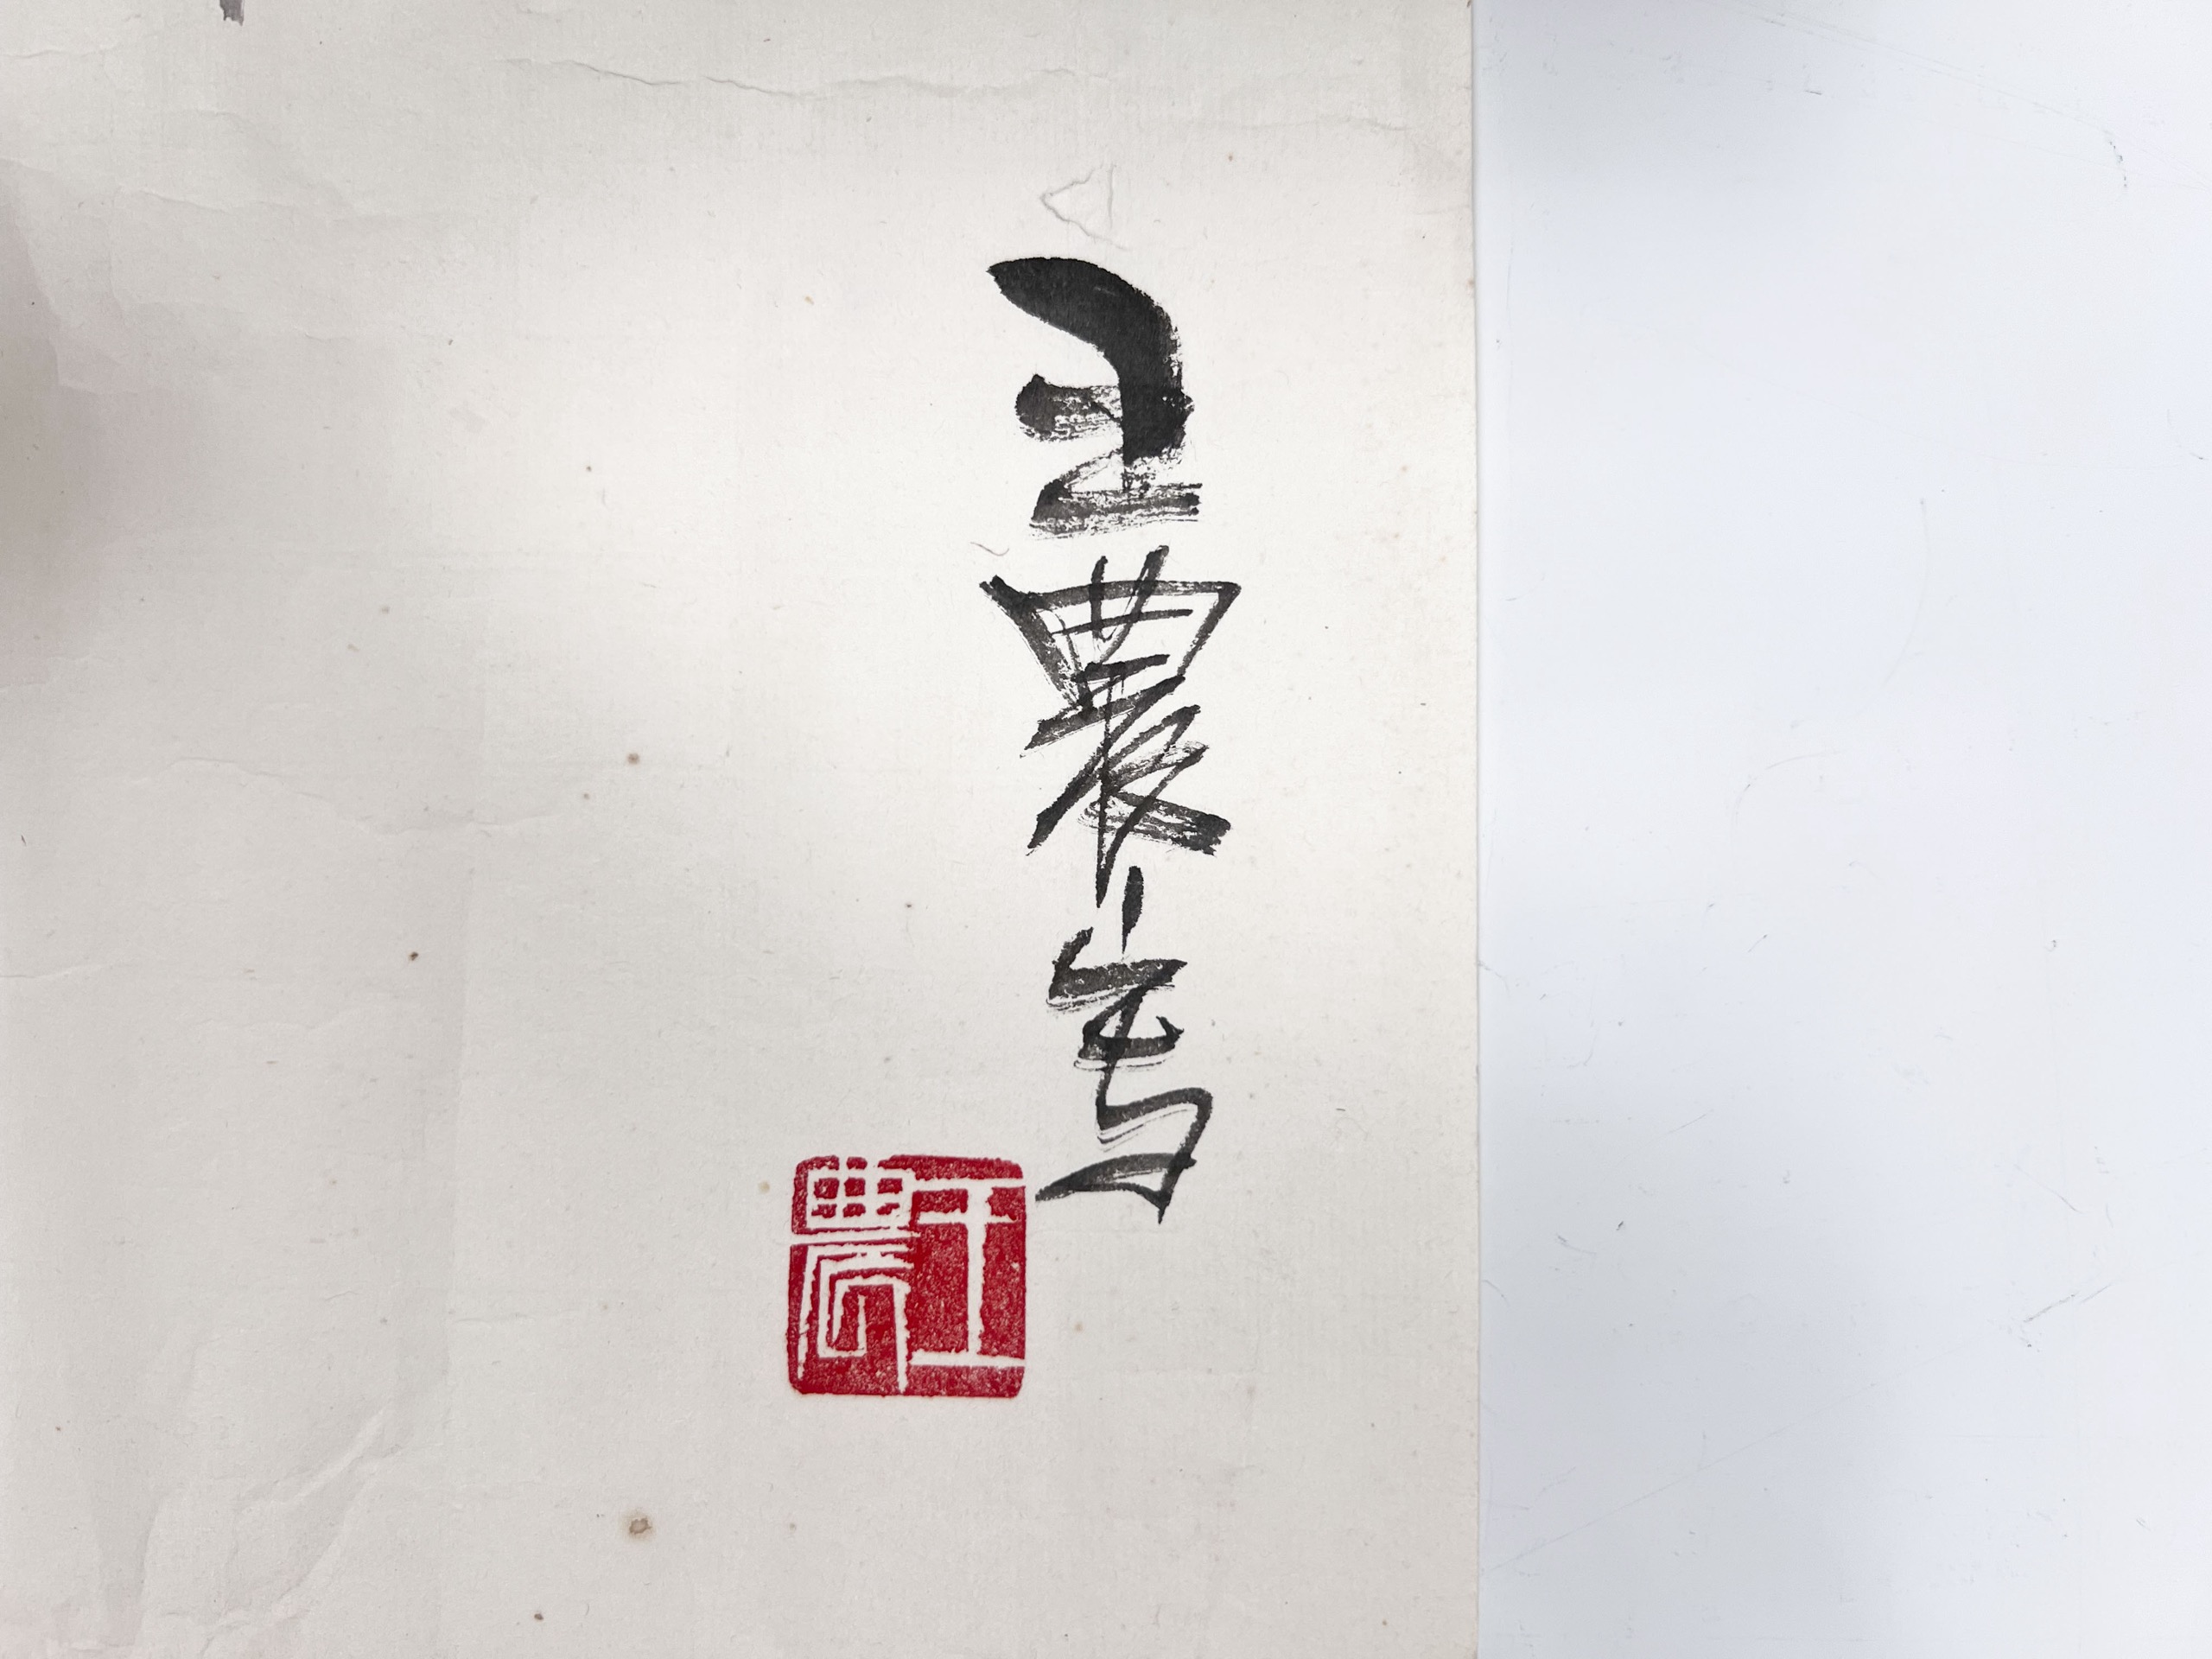 王農写
王農